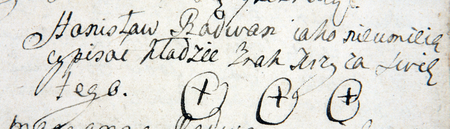 Stanisław Radwan iako nieumieią
cy pisac kładzie Znak Krzyża Swię
tego.